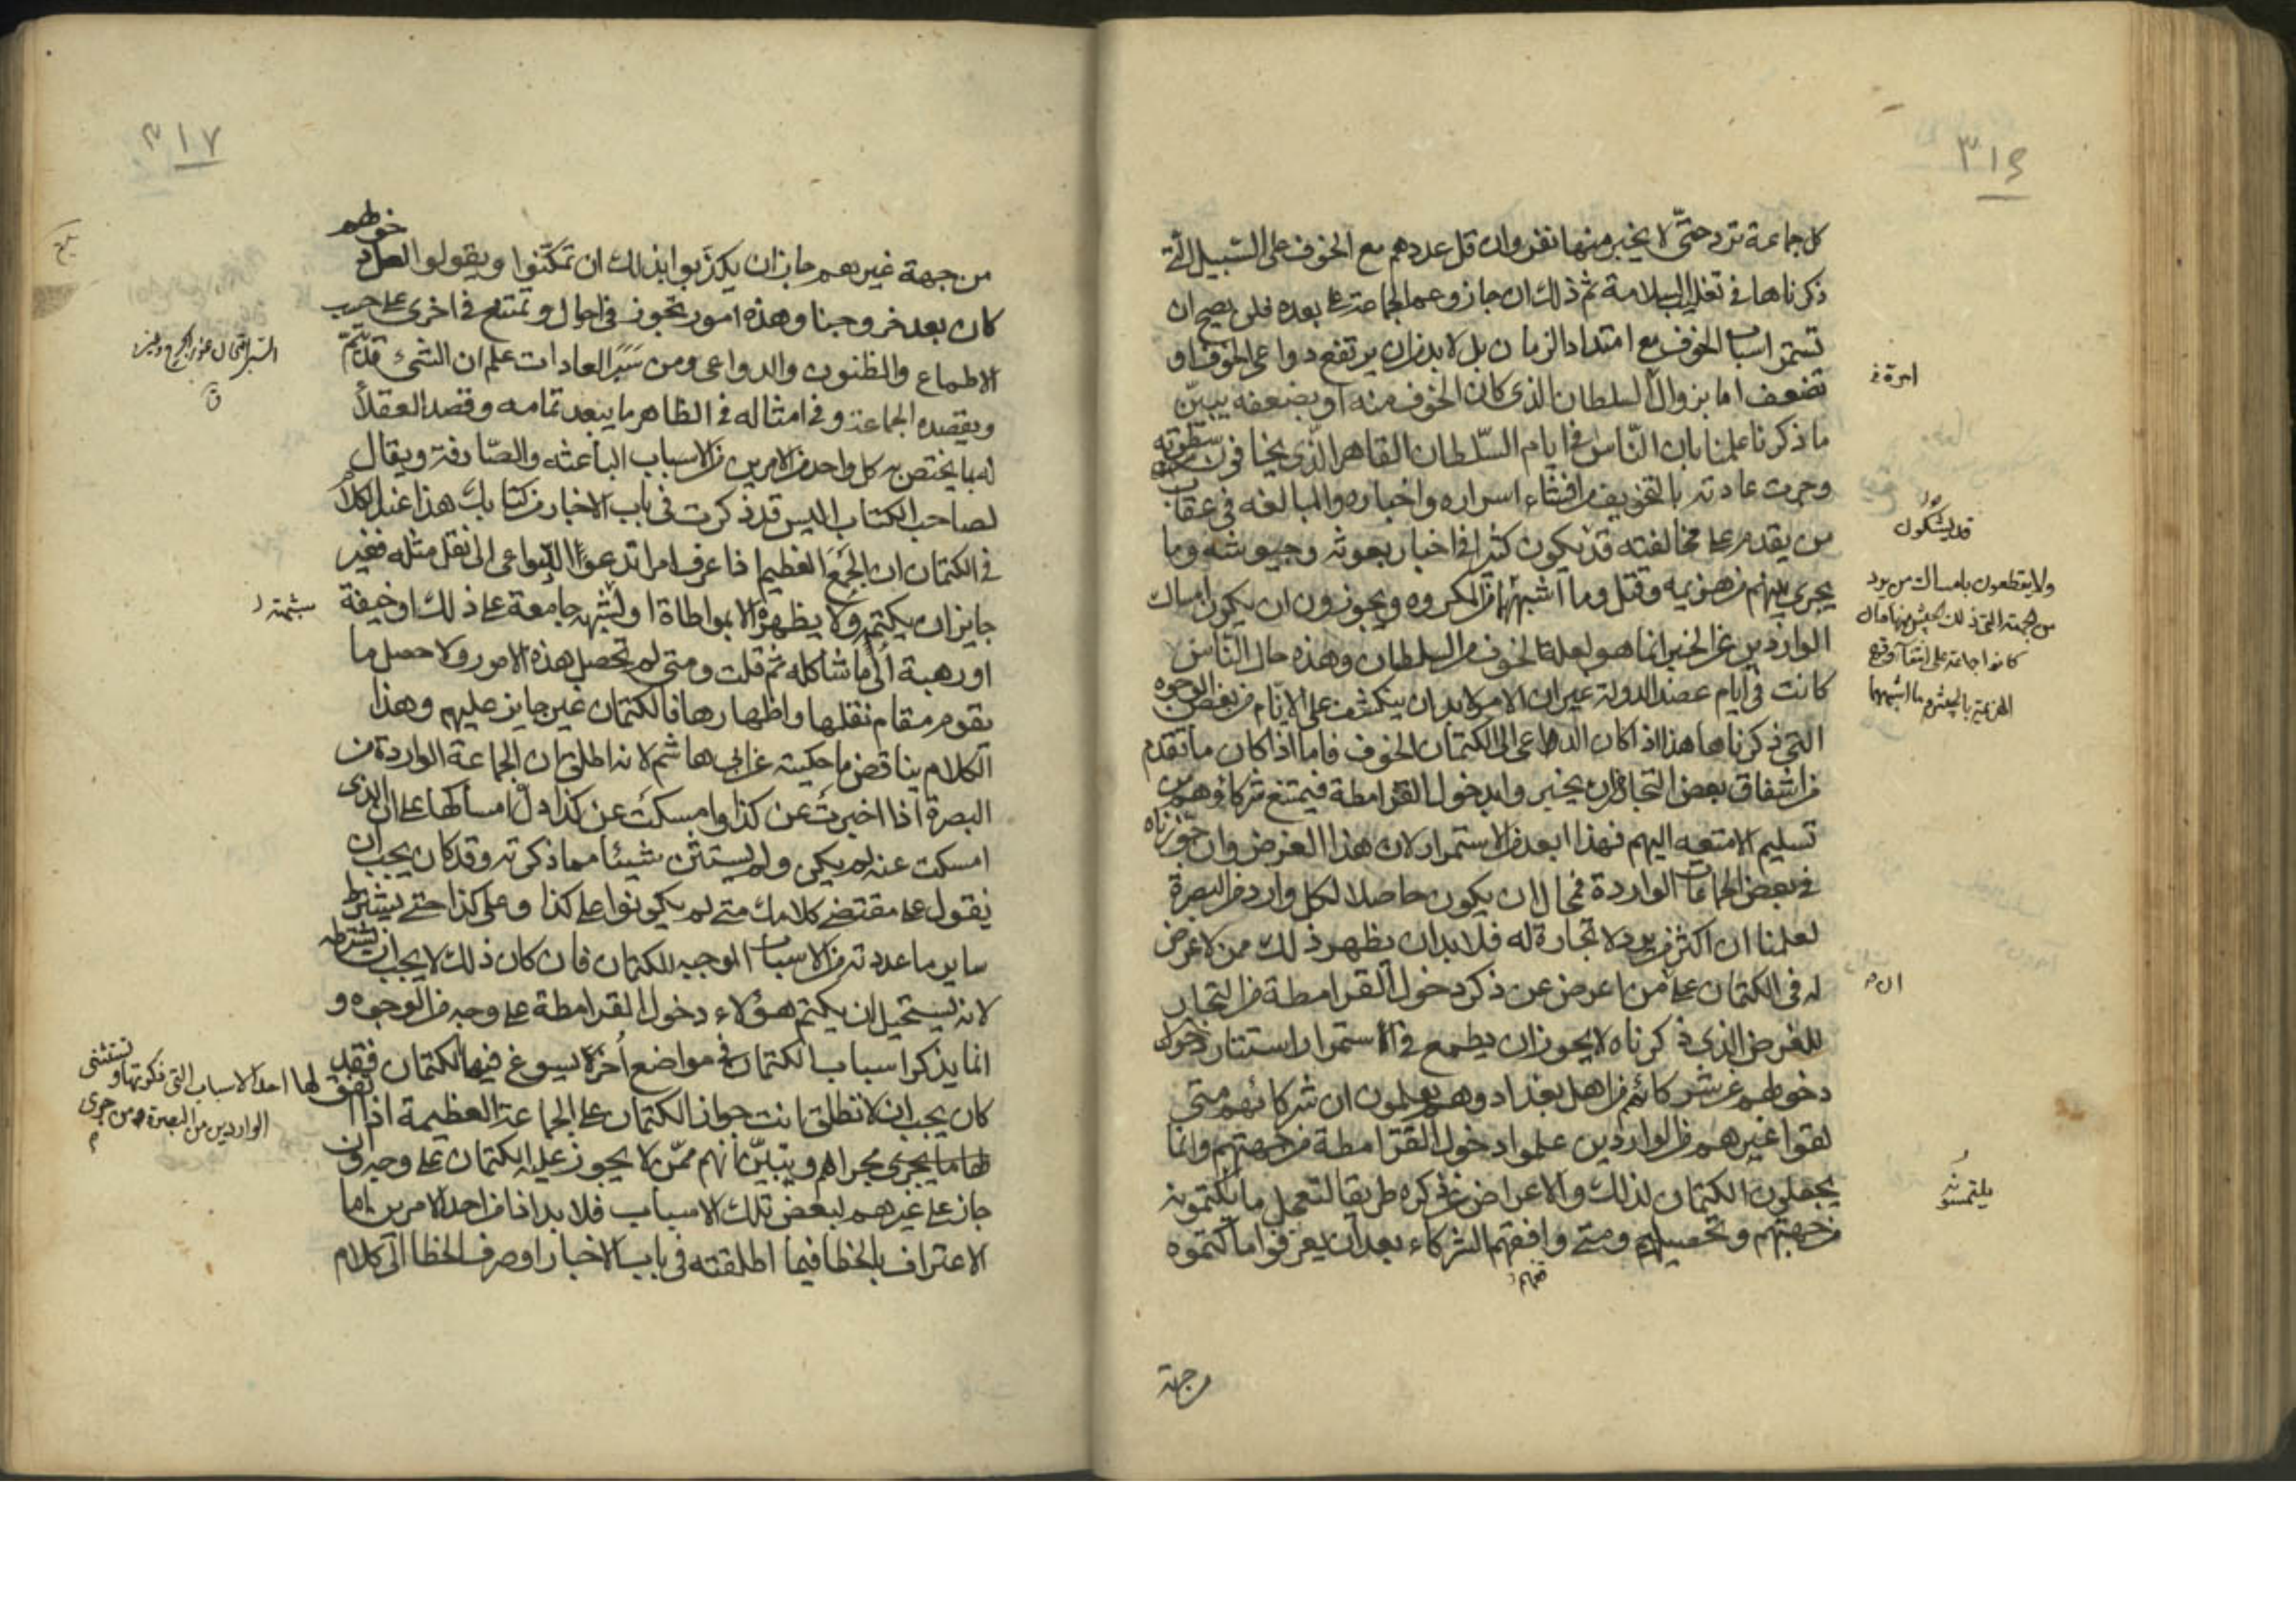 ٣١٦
كل جماعة ترد حتّى لا يخبر منها نفر وان قل عددهم مع الخوف على السّبيل الّتي
ذكرناها في تغليب السلامة ثم ذلك ان جاز وعم الجماعة على بعده فلن يصح ان
تستمر اسباب الخوف مع امتداد الزمان بل لا بد من ان يرتفع دواعى الخوف او
تضعف اما بزوال السلطان الذى كان الخوف منه او بضعفه يبيّن
ما ذكرنا علمنا بان النّاس في ايام السّلطان القاهر الّذى يخافون سطوته
وجرت عادته بالتخويف من افشاء اسراره واخباره والمبالغه في عقاب
من يقدم على مخالفته قد يكون كثيرا في اخبار بعوثه وجيوشه وما
يجرى بينهم من هزيمه وقتل وما اشبههما من المكروه ويجوزون ان يكون امساك
الواردين عن الخبر انما هو لعلة الخوف من السلطان وهذه حال النّاس
كانت في ايام عضد الدولة غير ان الامر لا بد ان ينكشف على الايام من بعض الوجوه
التي ذكرناها هذا اذا كان الداعى الى الكتمان الخوف فاما اذا كان ما تقدم
من اشفاق بعض التجار من ان يخبروا بدخول القرامطة فيمتنع شركاؤهم من
تسليم الامتعه اليهم فهذا ابعد من الاستمرار لان هذا الغرض وان جوّزناه
في بعض الجماعات الواردة فمحال ان يكون حاصلا لكل وارد من البصرة
لعلمنا ان اكثر من يرد لا تجارة له فلا بد ان يظهر ذلك ممن لا غرض
له في الكتمان على من اعرض عن ذكر دخول القرامطة من التجار
للغرض الذى ذكرناه لا يجوز ان يطمع في الاستمرار استتار
دخولهم عن شركائهم من اهل بغداد وهم يعلمون ان شركائهم متى
لقوا غيرهم من الواردين علموا دخول القرامطة من جهتهم وانما
يجعلون الكتمان لذلك والاعراض عن ذكره طريقا لتعمل ما يكتمونه
من جهتهم ومتى وافقهم الشركاء بعد ان يعرفوا ما كتموه
من جهة
امرة في
قد يشكون
ولا يقطعون بامساك من يرد
كانوا جماعة على
يلتمسونه
٣١٧
من جهة غيرهم جاز ان يكذّبوا بذلك ان تمكّنوا ويقولوا لعل دخولهم
كان بعد خروجنا وهذه امور تجوز في احوال وتمتنع في اخرى على حسب
الاطماع والظنون والدواعى ومن سَبَرَ العادات علم ان الشئ قد يتمّ
ويقصده الجماعة وفي امثاله في الظاهر ما يبعد تمامه وقصد العقلاء
لما يختص به كل واحد من الامرين من الاسباب الباعثه والصّارفة ويقال
لصاحب الكتاب اليس قد ذكرت في باب الاخبار من كتابك هذا عند الكلام
في الكتمان ان الجَمعَ العظيم اذا عرف امرا تدعو الدواعى الى نقل مثله فغير
جايز ان يكتمه ولا يظهره الا بمواطاة او لشبهه جامعة على ذلك او خيفة
او رهبة او ما شاكله ثم قلت ومتى لم تحصل هذه الامور ولا حصل ما
يقوم مقام نقلها واظهارها فالكتمان غير جايز عليهم وهذا
الكلام يناقض ما حكيته عن ابى هاشم لانه اطلق ان الجماعة الواردة من
البصرة اذا اخبرت عن كذا وامسكت عن كذا دلّ امساكها على ان الذى
امسكت عنه لم يكن ولم يستثن شيئا مما ذكرته وقد كان يجب ان
يقول على مقتضى كلامك متى لم يكونوا على كذا وعلى كذا حتى يشترط
ساير ما عددته من الاسباب الموجبه للكتمان فان كان ذلك لا يجب ان يشترطه
لانه يستحيل ان يكتم هؤلاء دخول القرامطة على وجه من الوجوه و
انما يذكر اسباب الكتمان في مواضع اُخرَ يسوغ فيها الكتمان فقد
كان يجب ان لا تطلق انت جواز الكتمان على الجماعة العظيمة اذا اتفق لها احد الاسباب التي ذكرتها وتستثنى
الواردين من البصرة ومن جرى
ما يجرى مجراهم ويتبيّن انهم ممّن لا يجوز عليه الكتمان على وجه وان
جاز على غيرهم لبعض تلك الاسباب فلا بد اذا من احد الامرين اما
الاعتراف بالخطا فيما اطلقته في باب الاخبار او صرف الخطا الى كلام
السبر امتحان غور الجرح وغيره
ق